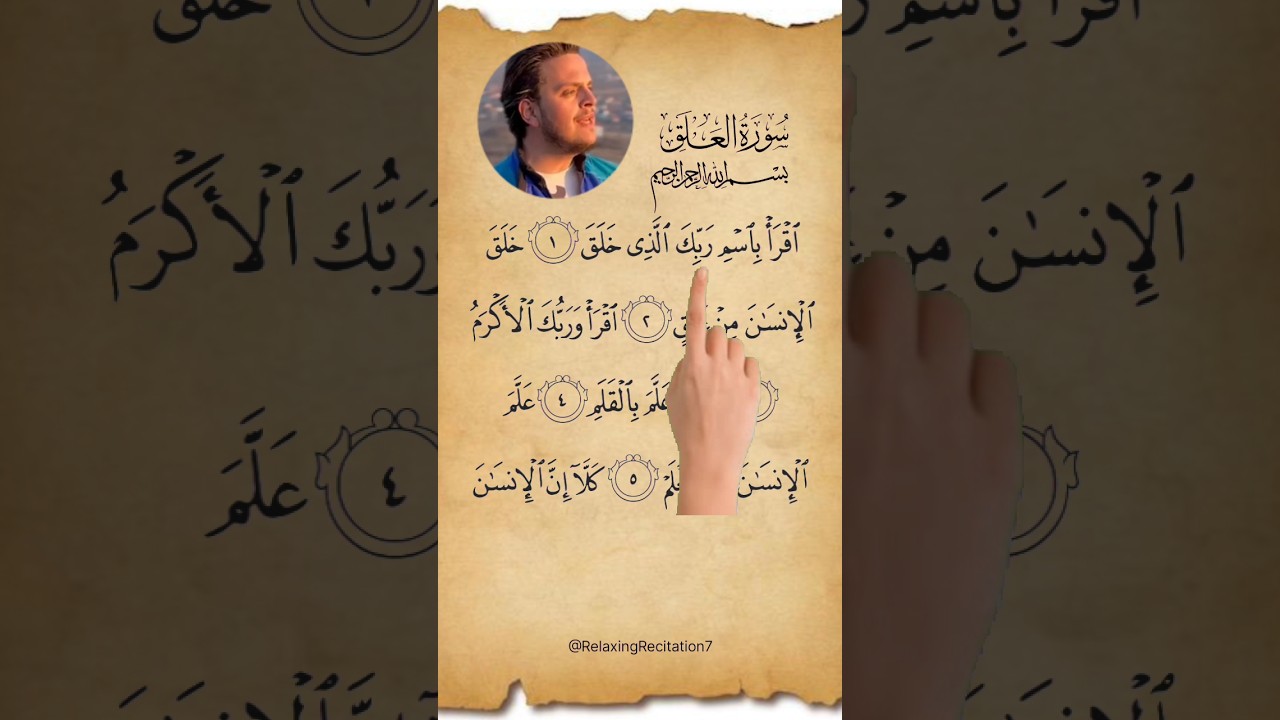 سُورَةُ العَلَقِ
بسم الله الرحمن الرحيم
ٱقْرَأْ بِٱسْمِ رَبِّكَ ٱلَّذِى خَلَقَ ١ خَلَقَ
ٱلْإِنسَـٰنَ مِنْ ٢ ٱقْرَأْ وَرَبُّكَ ٱلْأَكْرَمُ
عَلَّمَ بِٱلْقَلَمِ ٤ عَلَّمَ
ٱلْإِنسَـٰنَ ٥ كَلَّآ إِنَّ ٱلْإِنسَـٰنَ
@RelaxingRecitation7